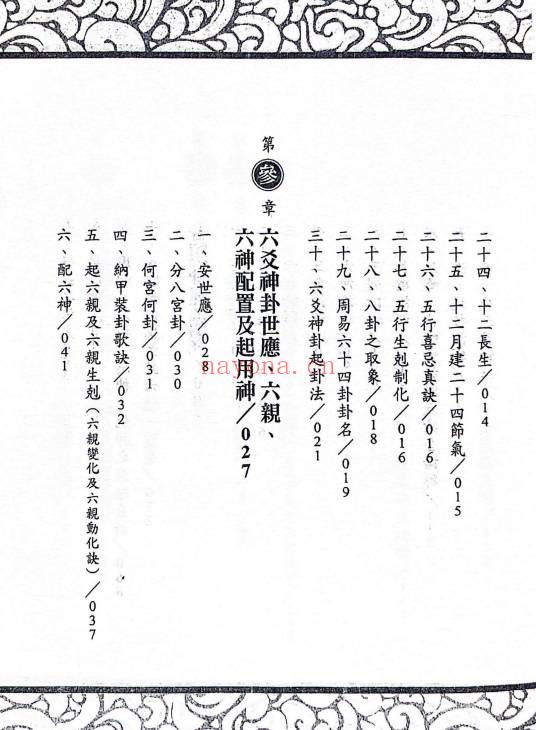 二十四、十二長生／014
二十五、十二月建二十四節氣／015
二十六、五行喜忌真訣／016
二十七、五行生剋制化／016
二十八、八卦之取象／018
二十九、周易六十四卦卦名／019
三十、六爻神卦起卦法／021
第參章
六爻神卦世應、六親、
六神配置及起用神／027
一、安世應／028
二、分八宮卦／030
三、何宮何卦／031
四、納甲裝卦歌訣／032
五、起六親及六親生剋（六親變化及六親動化訣）／037
六、配六神／041
nayona.cn